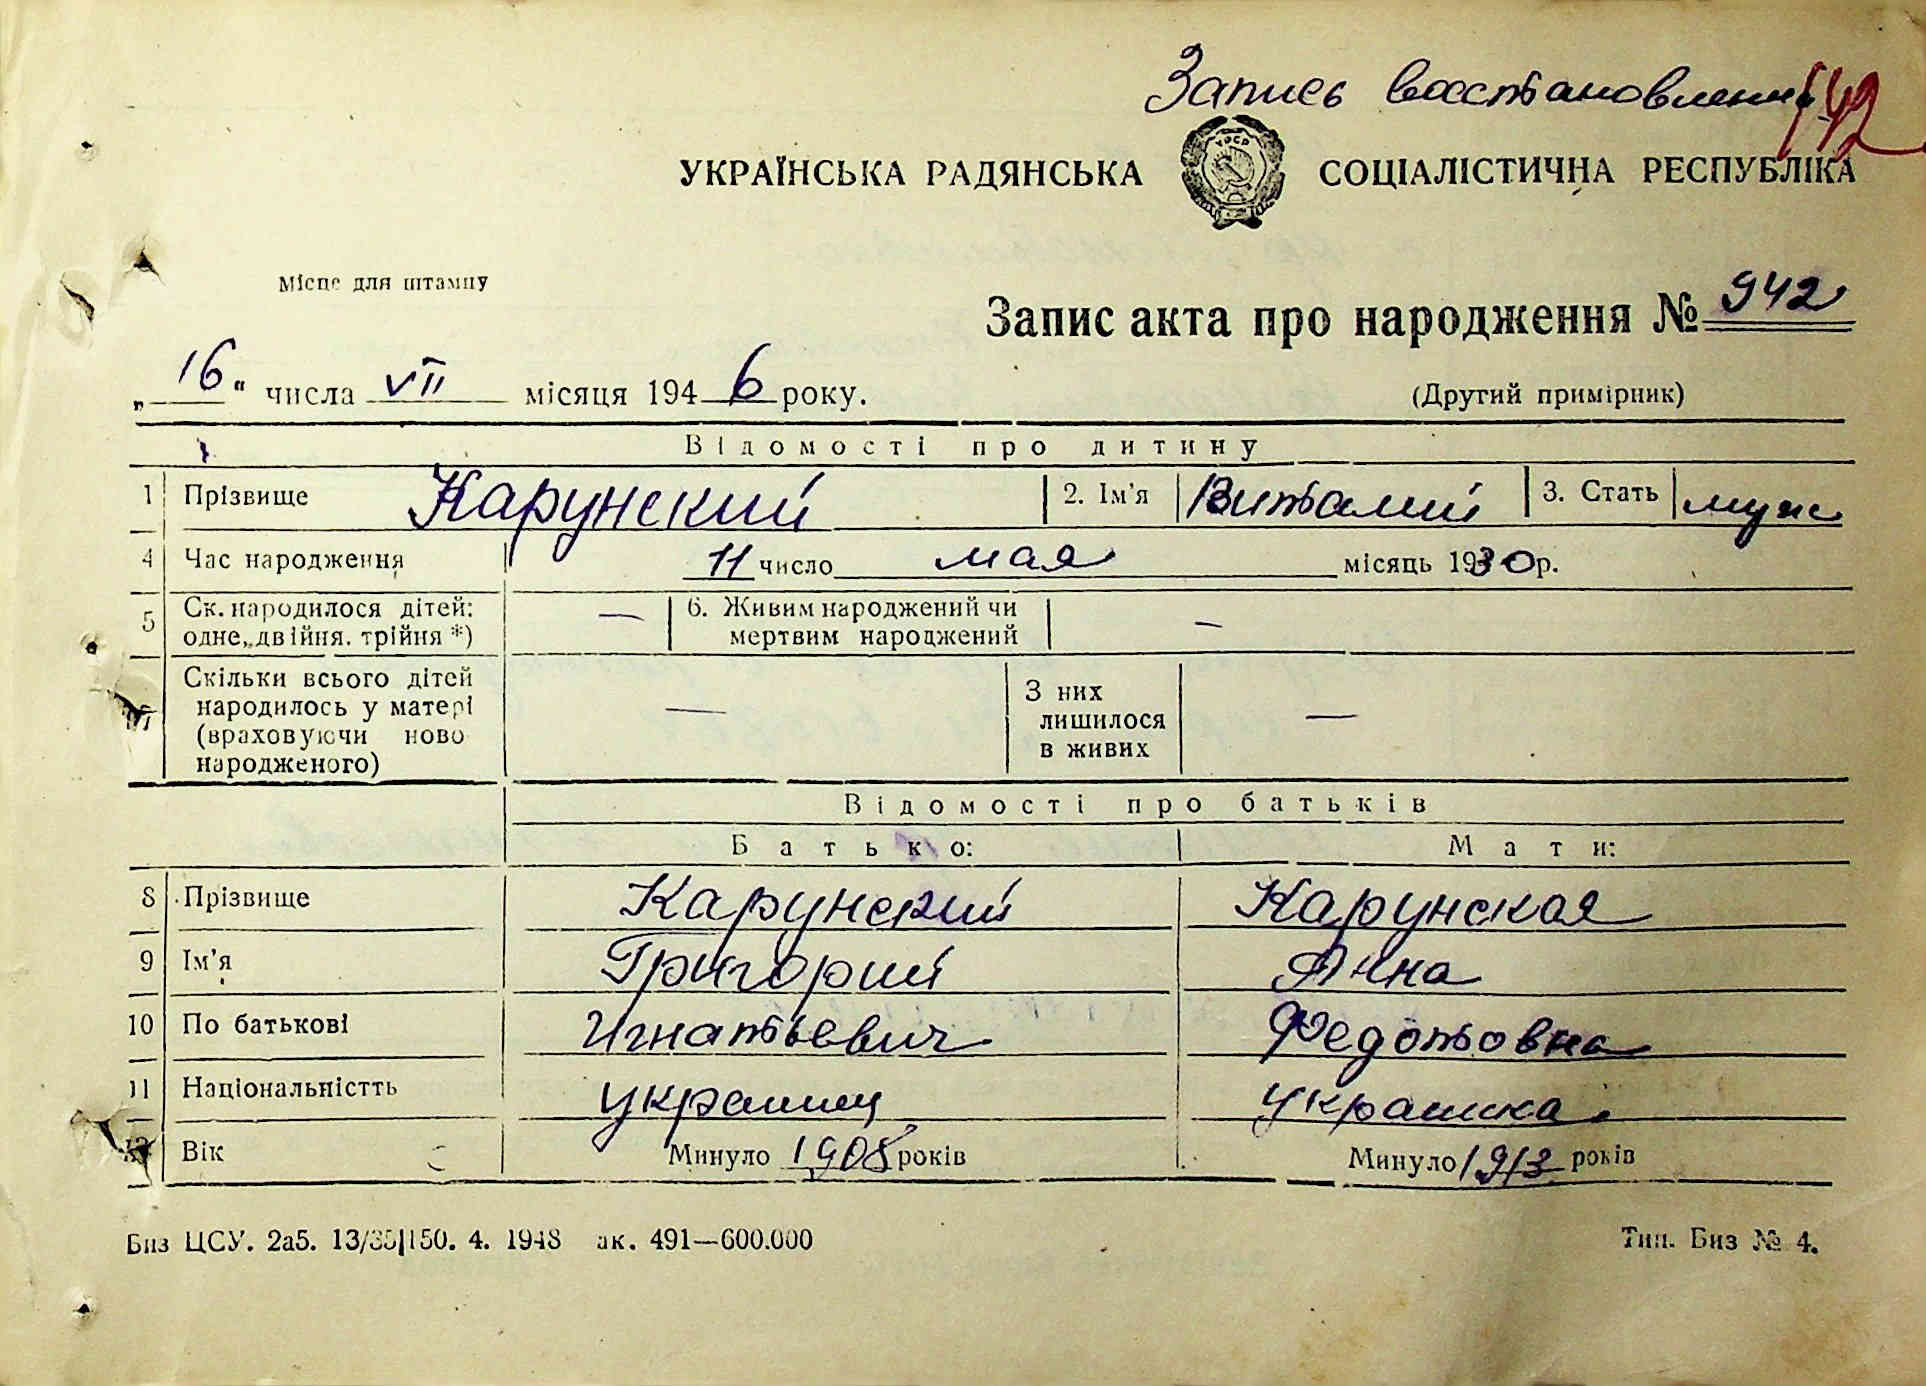 Запись восстановлена
142
УКРАЇНСЬКА РАДЯНСЬКА СОЦІАЛІСТИЧНА РЕСПУБЛІКА
УРСР
Місце для штампу
Запис акта про народження № 942
„16“ числа VII місяця 1946 року.
(Другий примірник)
Відомості про дитину
1 Прізвище Карунский 2. Ім'я Виталий 3. Стать муж
4 Час народження 11 число мая місяць 1930 р.
5 Ск. народилося дітей: одне, двійня. трійня *) — 6. Живим народжений чи мертвим народжений —
Скільки всього дітей народилось у матері (враховуючи ново народженого) — З них лишилося в живих —
Відомості про батьків
Батько: Мати:
8 Прізвище Карунский Карунская
9 Ім'я Григорий Анна
10 По батькові Игнатьевич Федотовна
11 Національністть украинец украинка
12 Вік Минуло 1908 років Минуло 1913 років
Биз ЦСУ. 2а5. 13/35|150. 4. 1948 ак. 491—600.000 Тип. Биз № 4.